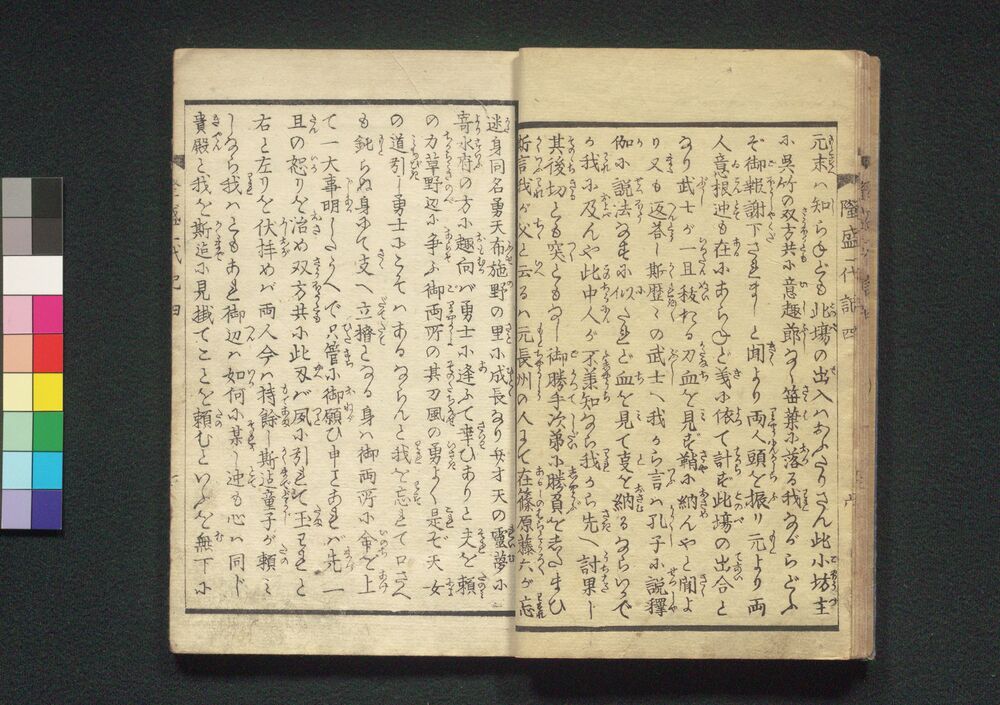 元末ハ知らねども此場の出入ハあふたりさん此小坊主
に呉竹の双方共に意趣節なく笹葉に落る我ながらどふ
ぞ御報謝下されましと聞より両人頭を振り元より両
人意根迚も在にあらねど義に依て計ず此場の出合と
なり武士が一且抜たる刀血を見ず鞘に納んやと聞よ
り又も返荅し斯歴々の武士へ我から言ハ孔子に説釋
伽に説法なすに似たれど血を見て支を納るならいで
か我に及んや此中人が不兼知なら我から先へ討果し
其後切とも突ともなし御勝手次第に勝負をしたまひ
斯言我が父と云るハ元長州の人にて在篠原藤六が忘
迷身同名勇天布施野の里に成長なり弁才天の靈夢に
寄水府の方に趣向バ勇士に逢ふて幸ひありと夫を頼
の力草野辺に争ふ御両所の其刀風の勇よく是ぞ天女
の道引し勇士にこそハあるならんと我を忘れて口さへ
も鈍らぬ身にて支へ立擔となる身ハ御両所に命を上
て一大事明したうへで只管に御願ひ申とあれバ先一
且の怒りを治め双方共に此刃バ夙に引れて玉われと
右と左りを伏拝めバ両人今ハ持餘し斯迠童子が頼ミ
しなら我ハともあれ御辺ハ如何に某し迚も心ハ同ド
貴殿と我を斯迠に見掛てことを頼むといふを無下に
隆盛一代記四